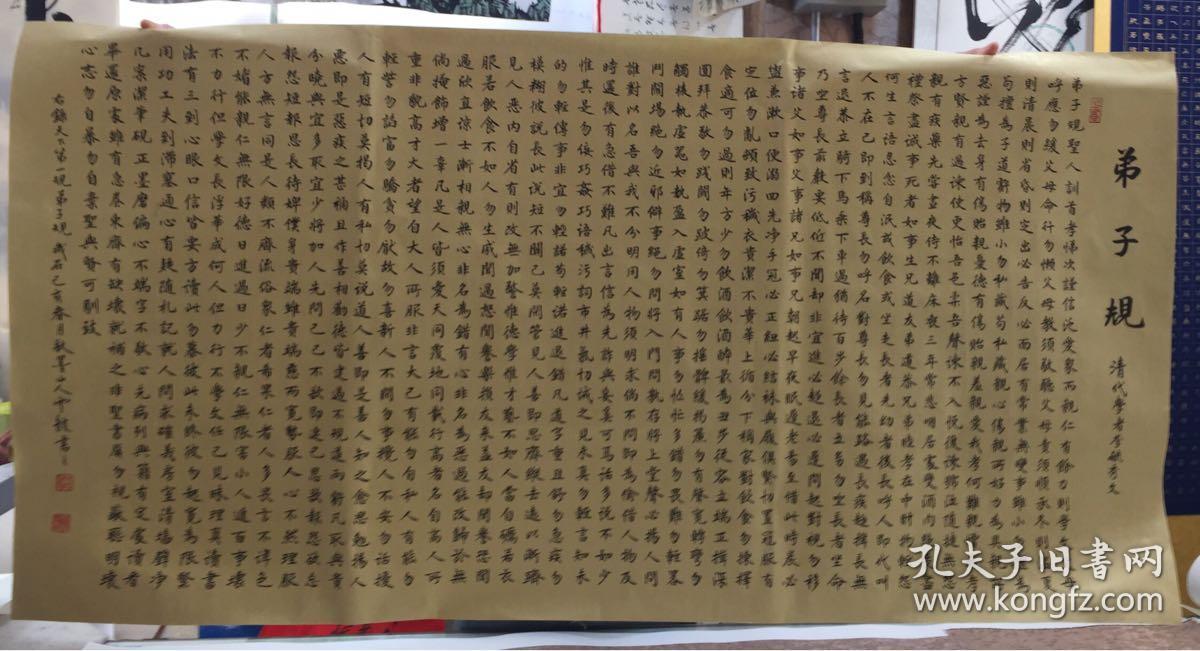 弟子規
清代學者李毓秀文
弟子規聖人訓首孝悌次謹信汎愛眾而親仁有餘力則學文父母
呼應勿緩父母命行勿懶父母教須敬聽父母責須順承冬則溫夏
則清晨則省昏則定出必告反必面居有常業無變事雖小勿擅為
苟擅為子道虧物雖小勿私藏苟私藏親心傷親所好力為具親所
惡謹為去身有傷貽親憂德有傷貽親羞親愛我孝何難親憎我孝
方賢親有過諫使更怡吾色柔吾聲諫不入悅復諫號泣隨撻無怨
親有疾藥先嘗晝夜侍不離床喪三年常悲咽居處變酒肉絕喪盡
禮祭盡誠事死者如事生兄道友弟道恭兄弟睦孝在中財物輕怨
何生言語忍忿自泯或飲食或坐走長者先幼者後長呼人即代叫
人不在己即到稱尊長勿呼名對尊長勿見能路遇長疾趨揖長無
言退恭立騎下馬乘下車過猶待百步餘長者立幼勿坐長者坐命
乃坐尊長前聲要低低不聞却非宜進必趨退必遲問起對視勿移
事諸父如事父事諸兄如事兄朝起早夜眠遲老易至惜此時晨必
盥兼漱口便溺回先净手冠必正紐必結襪與履俱緊切置冠服有
定位勿亂頓致污穢衣貴潔不貴華上循分下稱家對飲食勿揀擇
食適可勿過則年方少勿飲酒飲酒醉最為丑步從容立端正揖深
圓拜恭敬勿踐閾勿跛倚勿箕踞勿搖髀緩揭簾勿有聲寬轉彎勿
觸棱執虛器如執盈入虛室如有人事勿忙忙多錯勿畏難勿輕略
鬥鬧場絕勿近邪僻事絕勿問將入門問孰存將上堂聲必揚人問
誰對以名吾與我不分明用人物須明求倘不問即為偷借人物及
時還後有急借不難凡出言信為先詐與妄奚可焉話多說不如少
惟其是勿佞巧奸巧語穢污詞市井氣切誡之見未真勿輕言知未
的勿輕傳事非宜勿輕諾苟輕諾進退錯凡道字重且舒勿急疾勿
模糊彼說長此說短不關己莫閒管見人善即思齊縱去遠以漸躋
見人惡內自省有則改無加警惟德學惟才藝不如人當自礪若衣
服若飲食不如人勿生慼聞過怒聞譽樂損友來益友却聞譽恐聞
過欣直諒士漸相親無心非名為錯有心非名為惡過能改歸於無
倘掩飾增一辜凡是人皆須愛天同覆地同載行高者名自高人所
重非貌高才大者望自大人所服非言大己有能勿自私人有能勿
輕訾勿諂富勿驕貧勿厭故勿喜新人不閒勿事攪人不安勿話擾
人有短切莫揭人有私切莫說道人善即是善人知之愈思勉揚人
惡即是惡疾之甚禍且作善相勸德皆建過不規道兩虧凡取與貴
分曉與宜多取宜少將加人先問己己不欲即速已恩欲報怨欲忘
報怨短報恩長待婢僕身貴端雖貴端慈而寬勢服人心不然理服
人方無言同是人類不齊流俗眾仁者希果仁者人多畏言不諱色
不媚能親仁無限好德日進過日少不親仁無限害小人進百事壞
不力行但學文長浮華成何人但力行不學文任己見昧理真讀書
法有三到心眼口信皆要方讀此勿慕彼此未終彼勿起寬為限緊
用功工夫到滯塞通心有疑隨札記就人問求確義房室清墻壁净
几案潔筆硯正墨磨偏心不端字不敬心先病列典籍有定處讀看
畢還原處雖有急卷束齊有缺壞就補之非聖書屏勿視蔽聰明壞
心志勿自暴勿自棄聖與賢可馴致
右錄天下第一規弟子規
孔夫子旧书网
www.kongfz.com